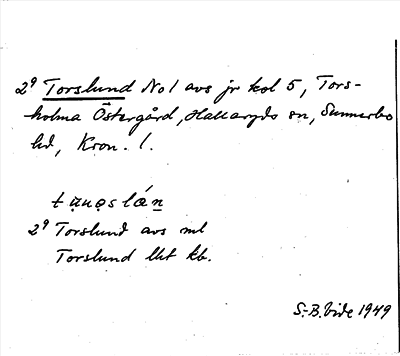 2⁹ Torslund No 1 avs jr kol 5, Tors-
holma Östergård, Hallaryds sn, Sunnerbo
hd, Kron. l.
2⁹ Torslund avs ml
Torslund lht kb.
S.-B. Vide 1949